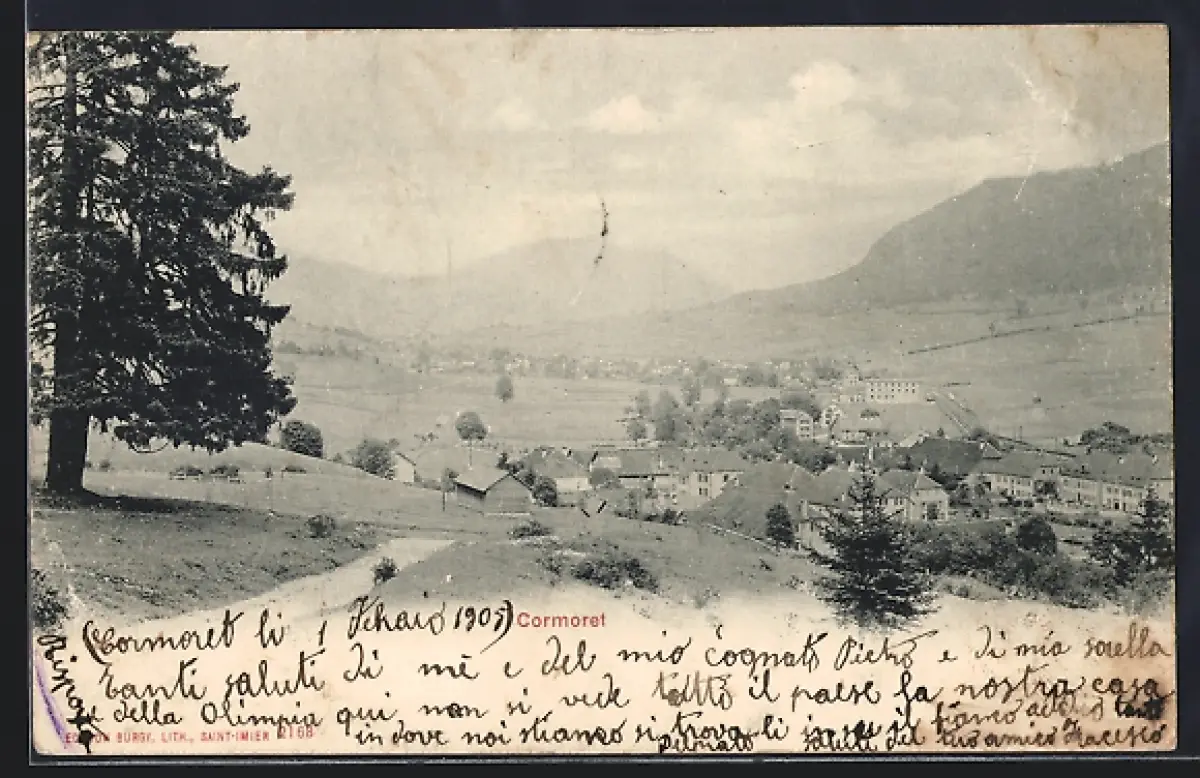 Cormoret
(Cormoret li 1 Febraio 1905)
Tanti saluti di me e del mio cognato Pietro e di mia sorella
e della Olimpia qui non si vede tutto il paese la nostra casa
in dove noi stiamo si trova li in su il fianco
saluti del tuo amico
EDITION BÜRGY, LITH., SAINT-IMIER 2168